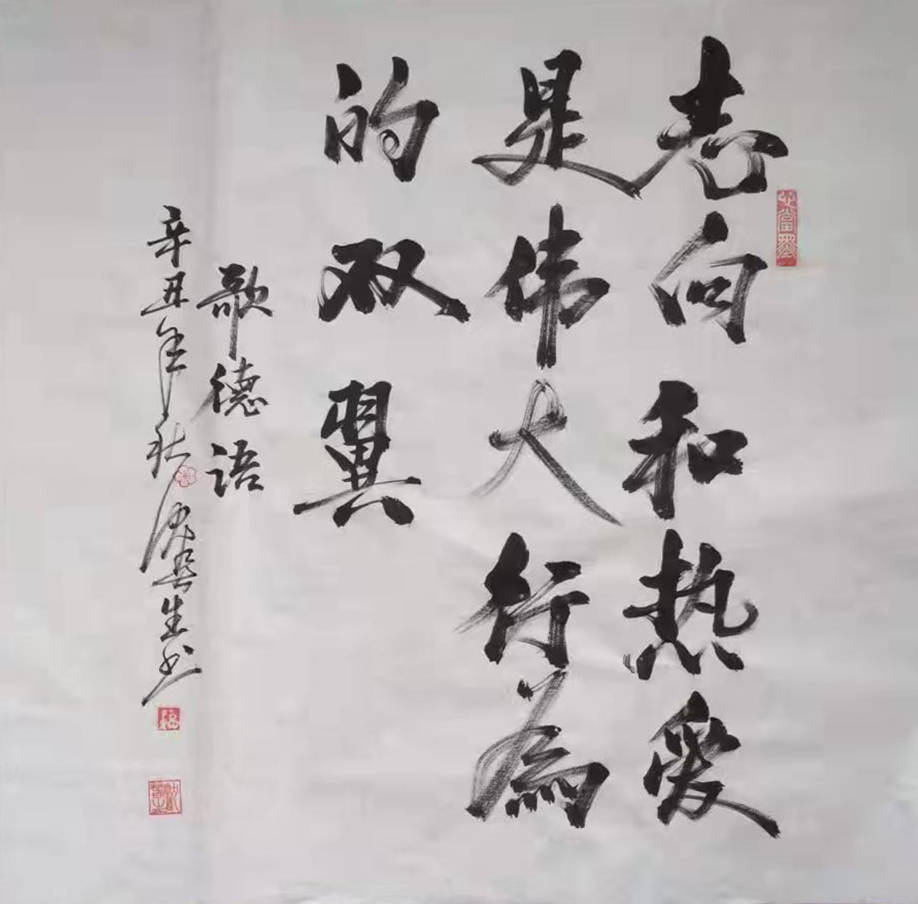 志向和热爱
是伟大行为
的双翼
歌德语
辛丑年秋
生书